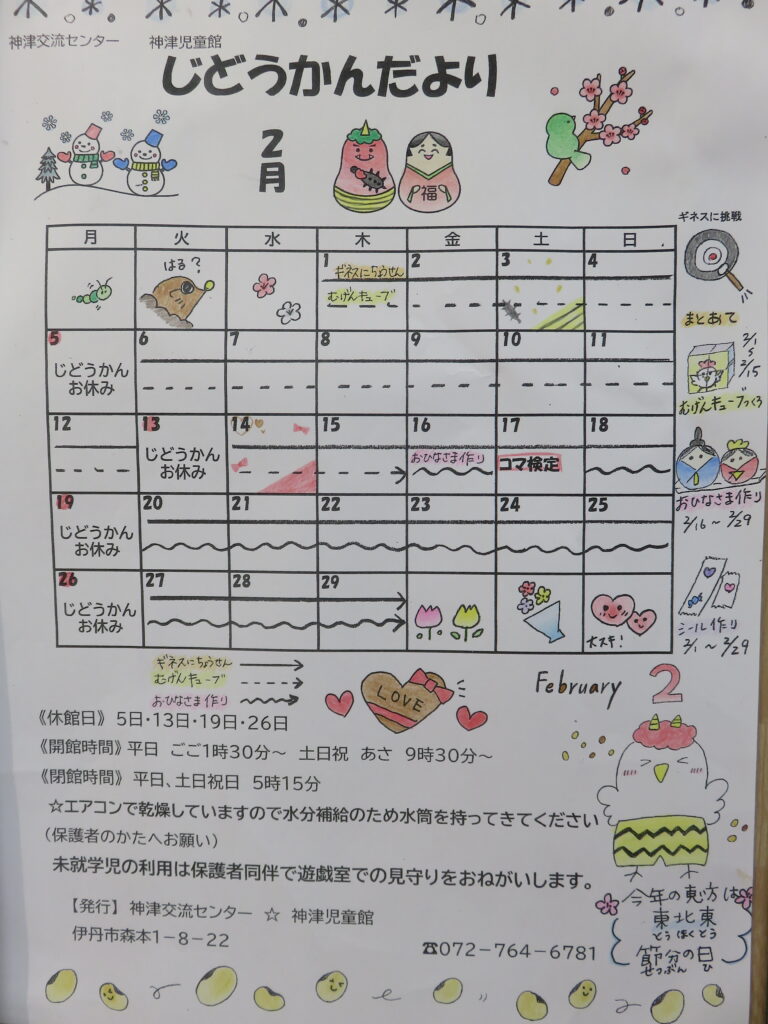 神津交流センター 神津児童館
じどうかんだより
2月
福
月 火 水 木 金 土 日
はる?
1 2 3 4
ギネスにちょうせん
むげんキューブ
5 6 7 8 9 10 11
じどうかん
お休み
12 13 14 15 16 17 18
じどうかん
お休み
おひなさま作り
コマ検定
19 20 21 22 23 24 25
じどうかん
お休み
26 27 28 29
じどうかん
お休み
大スキ!
ギネスに挑戦
まとあて
2/1
2/15
むげんキューブつくろ
おひなさま作り
2/16~2/29
シール作り
2/1~2/29
ギネスにちょうせん
むげんキューブ
おひなさま作り
LOVE
February 2
《休館日》 5日・13日・19日・26日
《開館時間》 平日 ごご1時30分~ 土日祝 あさ 9時30分~
《閉館時間》 平日、土日祝日 5時15分
☆エアコンで乾燥していますので水分補給のため水筒を持ってきてください
(保護者のかたへお願い)
未就学児の利用は保護者同伴で遊戯室での見守りをおねがいします。
【発行】 神津交流センター ☆ 神津児童館
伊丹市森本1-8-22
☎072-764-6781
今年の恵方は
東北東
とうほくとう
節分の日
せつぶん ひ